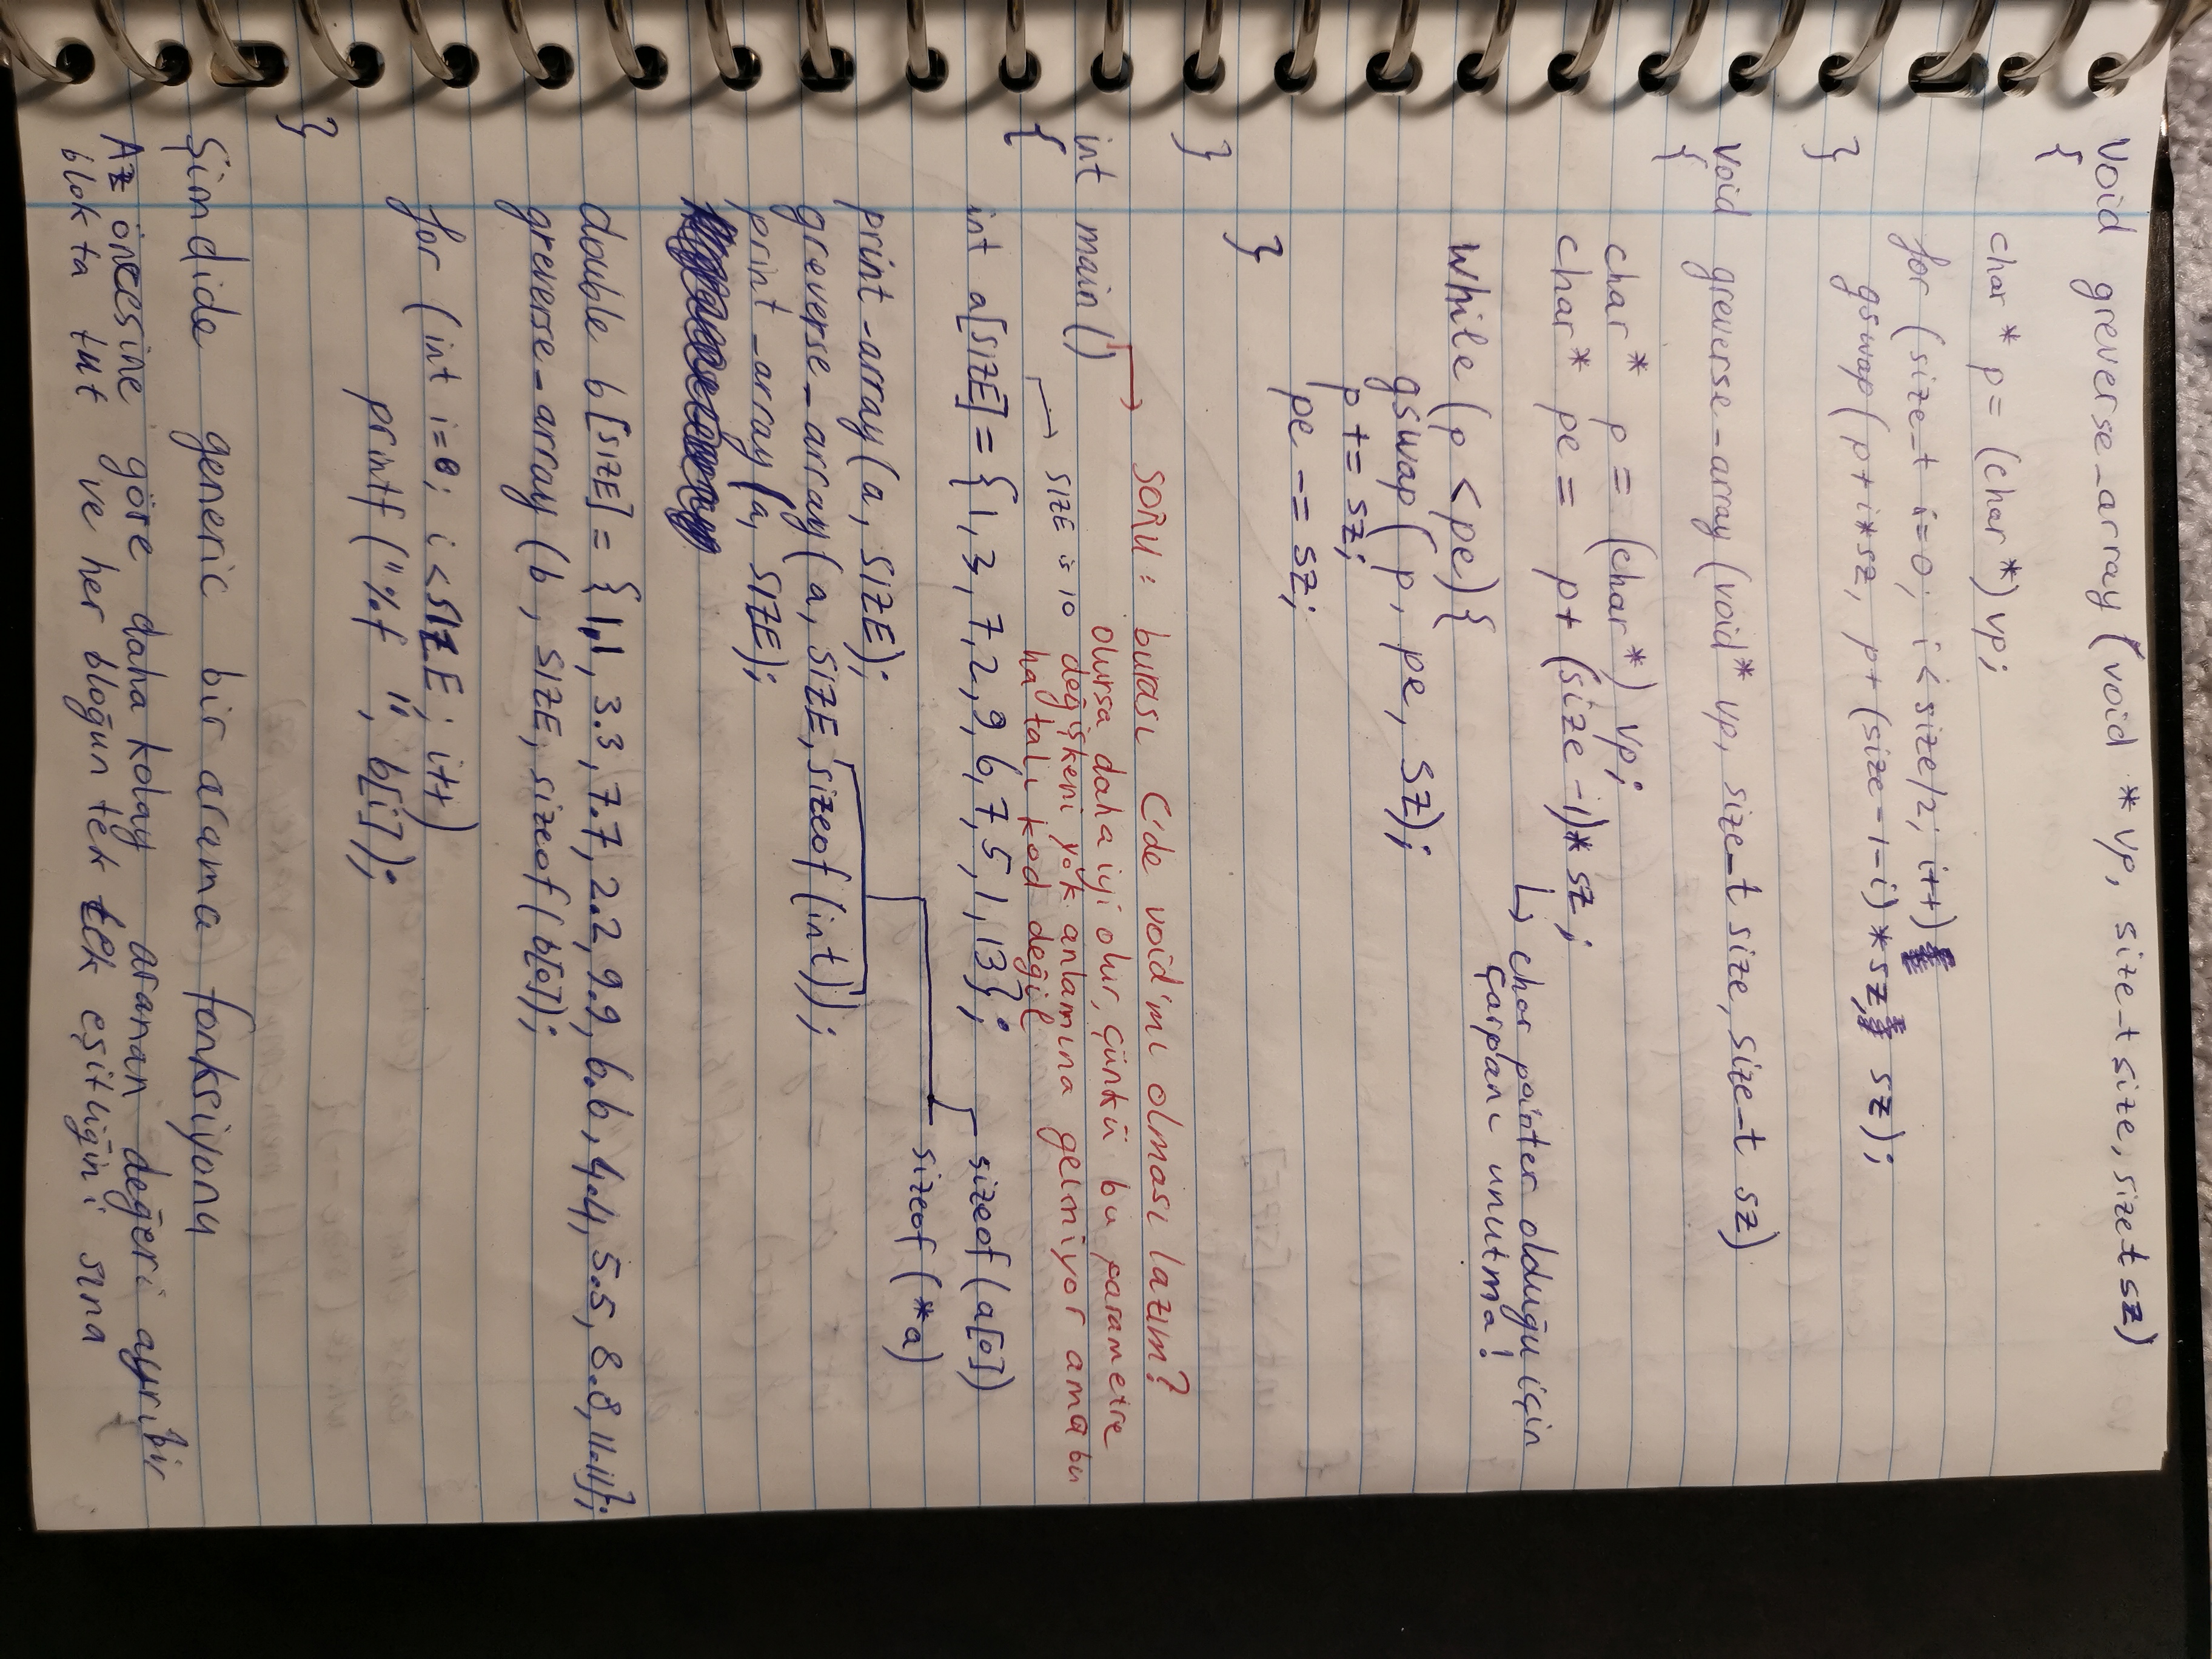 void greverse_array (void * vp, size_t size, size_t sz)
{
char * p = (char *) vp;
for (size_t i=0; i < size/2; i++)
gswap( p+i*sz, p+(size-1-i)*sz, sz);
}
void greverse_array (void* vp, size_t size, size_t sz)
{
char* p = (char*) vp;
char* pe = p+ (size-1)* sz;
↳ char pointer olduğu için
çarpanı unutma!
while (p < pe){
gswap( p, pe, sz);
p += sz;
pe -= sz;
}
}
SORU: burası C'de void'mi olması lazım?
olursa daha iyi olur, çünkü bu parametre
int main()
değişkeni yok anlamına gelmiyor ama bu
{
SIZE is 10
hatalı kod değil
int a[SIZE] = {1,3,7,2,9,6,7,5,1,13};
sizeof (a[0])
sizeof (*a)
print_array(a, SIZE);
greverse_array(a, SIZE, sizeof(int));
print_array(a, SIZE);
double b[SIZE] = {1.1, 3.3, 7.7, 2.2, 9.9, 6.6, 4.4, 5.5, 8.8, 11.11};
greverse_array (b, SIZE, sizeof(b[0]);
for (int i=0; i<SIZE; i++)
printf ("%f ", b[i]);
}
Şimdide generic bir arama fonksiyonu
Az öncesine göre daha kolay aranan değeri ayrı bir
blokta tut ve her bloğun tek tek eşitliğini sına